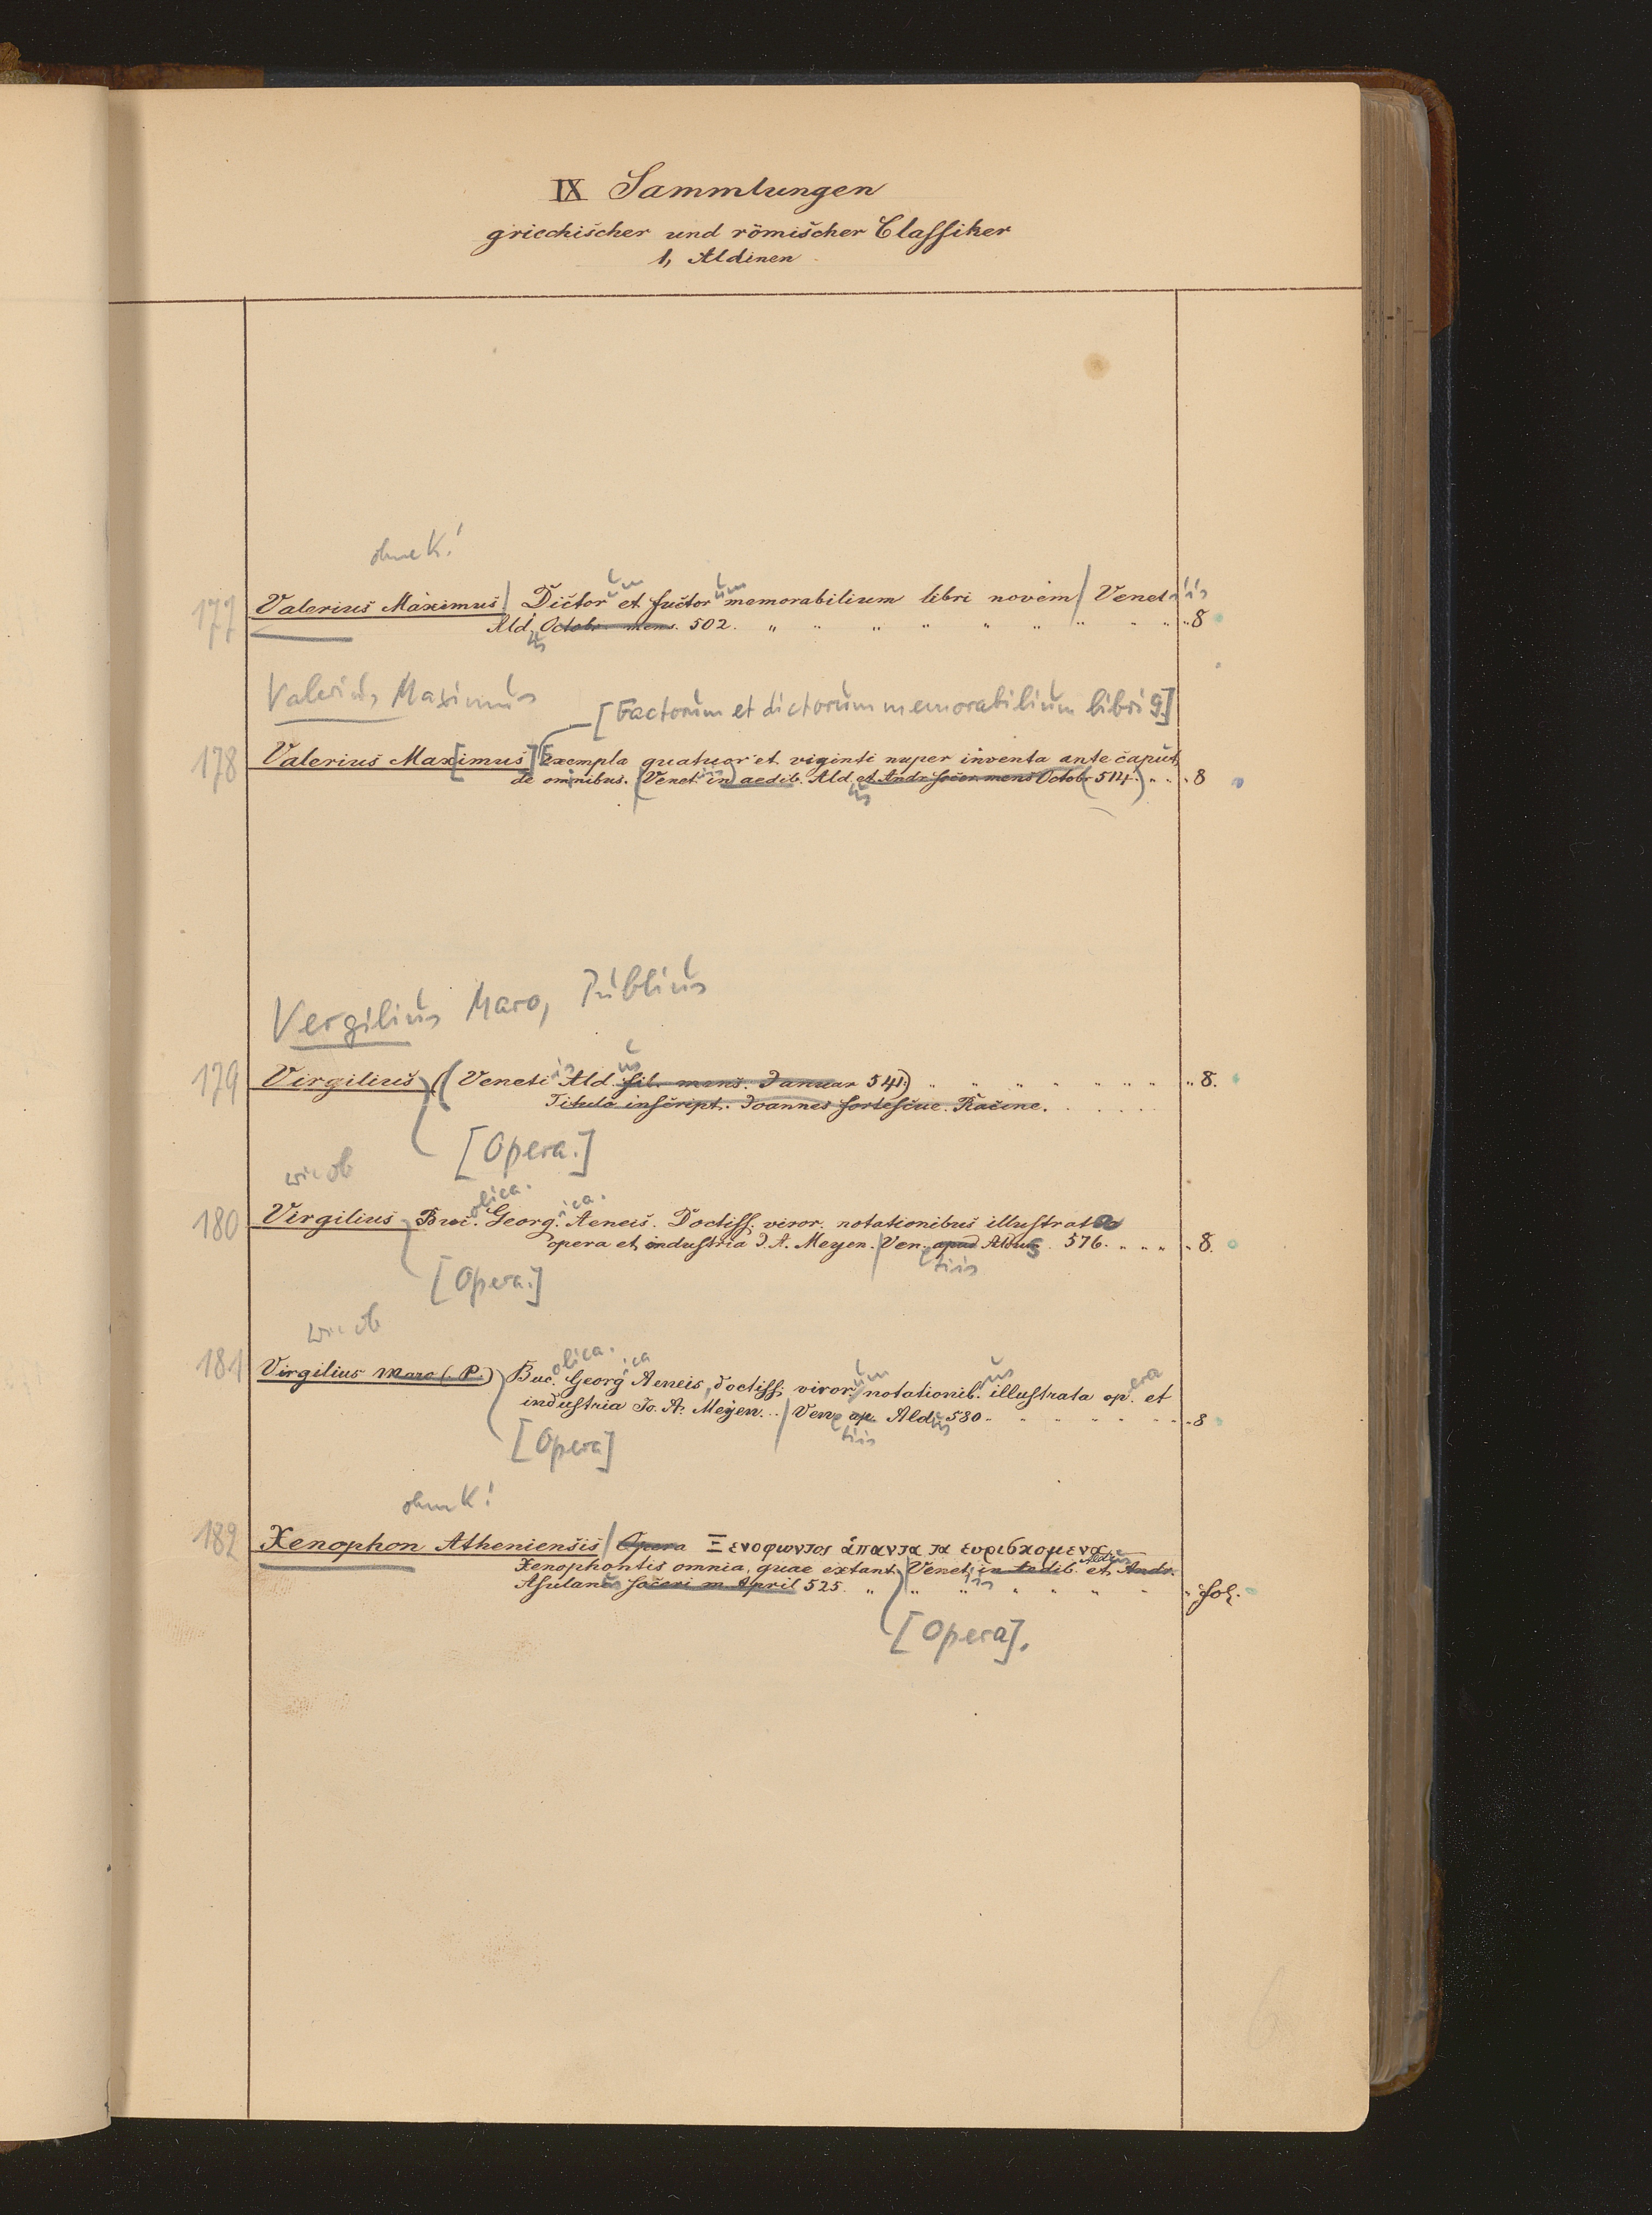 IX Sammlungen
griechischer und römischer Classiker
1, Aldinen
ohne K!
177 Valerius Maximus Dictorum et factorum memorabilium libri novem Venetiis
Ald. Octobr. mens. 502. 8
Valerius Maximus
[Factorum et dictorum memorabilium libri 9.]
178 Valerius Max[imus] Exempla quatuor et viginti nuper inventa ante caput
de omnibus. (Venet in) aedib. Ald. et Andr socer. mens Octobr. 514.) 8
Vergilius Maro, Publius
179 Virgilius (Veneti Ald. fil. mens. Januar 541.) 8.
Titulo inscript. Joannes fortescue. Racine.
[Opera.]
wie ob
180 Virgilius Buc.olica. Georg.ica. Aeneis. Doctiss. viror. notationibus illustrata
opera et industria J. A. Meyen. Ven. apud Aldus. 576. 8.
tiis
[Opera.]
wie ob
181 Virgilius Maro (P.) Buc.olica. Georgica Aeneis, doctiss. virorum notationib.us illustrata op.era et
industria Jo. A. Meyen. Ven. ap. Aldus 580. 8
tiis
[Opera]
ohne K!
182 Xenophon Atheniensis Opera Ξενοφωντος άπαντα τα ευρισκομενα.
Xenophontis omnia, quae extant. Venet. in aedib. Aldus et Andr.
Asulanus soceri m. April 525. fol.
[Opera].